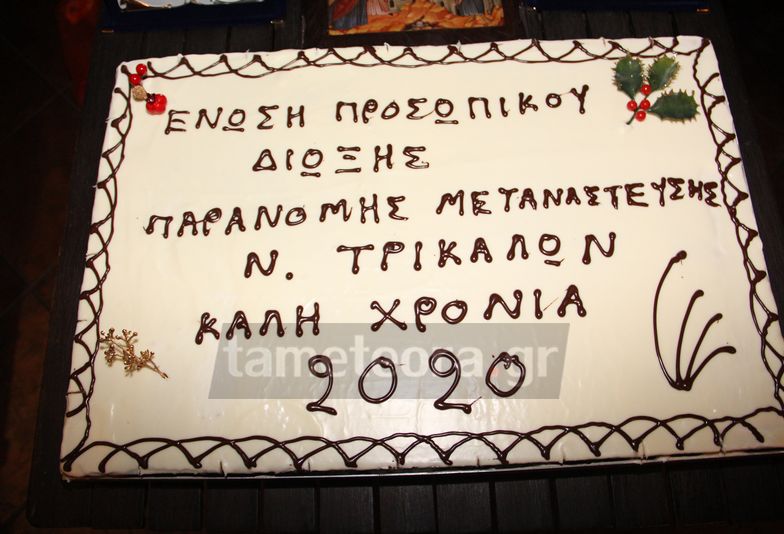 ΕΝΩΣΗ ΠΡΟΣΩΠΙΚΟΥ
ΔΙΩΞΗΣ
ΠΑΡΑΝΟΜΗΣ ΜΕΤΑΝΑΣΤΕΥΣΗΣ
Ν. ΤΡΙΚΑΛΩΝ
ΚΑΛΗ ΧΡΟΝΙΑ
tameteora.gr
2020